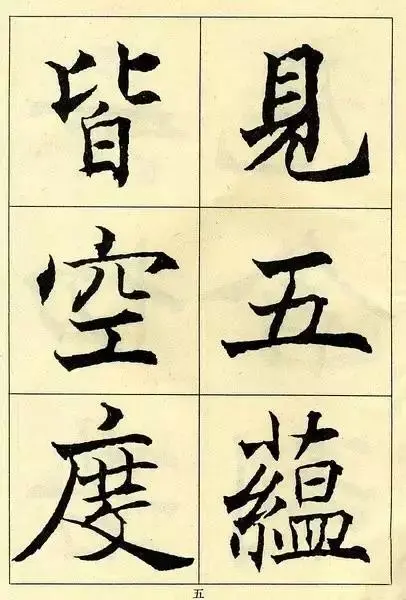 見五蘊
皆空度
五